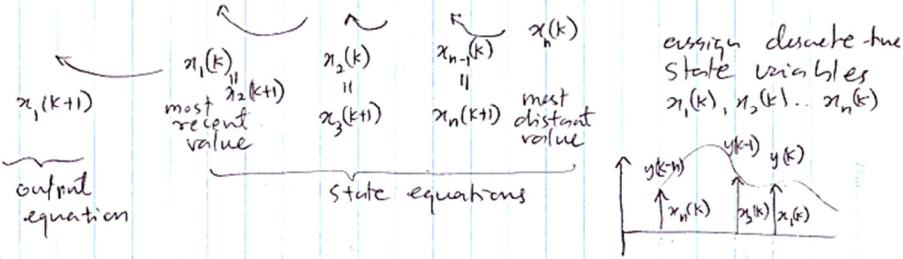 x₁(k+1)
output
equation
x₁(k)
=
x₂(k+1)
most
recent
value
x₂(k)
=
x₃(k+1)
xₙ₋₁(k)
=
xₙ(k+1)
xₙ(k)
most
distant
value
state equations
assign discrete-time
state variables
x₁(k), x₂(k) .. xₙ(k)
y(k-n)
y(k-1)
y(k)
xₙ(k)
x₁(k)